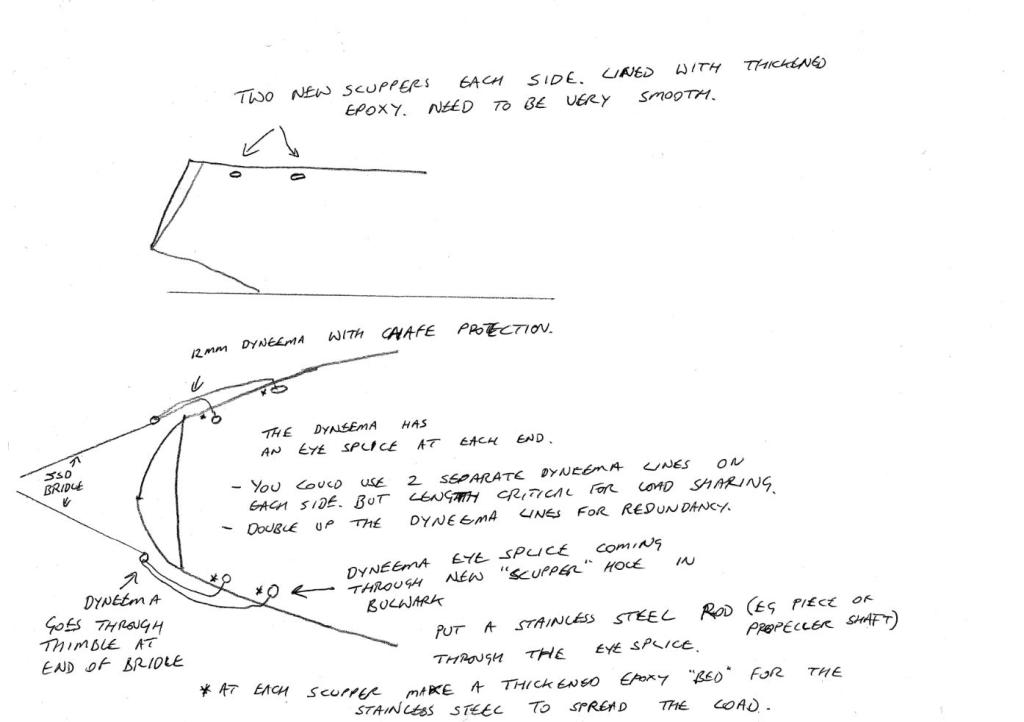 TWO NEW SCUPPERS EACH SIDE. LINED WITH THICKENED
EPOXY. NEED TO BE VERY SMOOTH.
12MM DYNEEMA WITH CHAFE PROTECTION.
THE DYNEEMA HAS
AN EYE SPLICE AT EACH END.
JSD
BRIDLE
- YOU COULD USE 2 SEPARATE DYNEEMA LINES ON
EACH SIDE. BUT LENGTH CRITICAL FOR LOAD SHARING.
- DOUBLE UP THE DYNEEMA LINES FOR REDUNDANCY.
DYNEEMA EYE SPLICE COMING
THROUGH NEW "SCUPPER" HOLE IN
BULWARK
DYNEEMA
GOES THROUGH
THIMBLE AT
END OF BRIDLE
PUT A STAINLESS STEEL ROD (EG PIECE OF
PROPELLER SHAFT)
THROUGH THE EYE SPLICE.
* AT EACH SCUPPER MAKE A THICKENED EPOXY "BED" FOR THE
STAINLESS STEEL TO SPREAD THE LOAD.